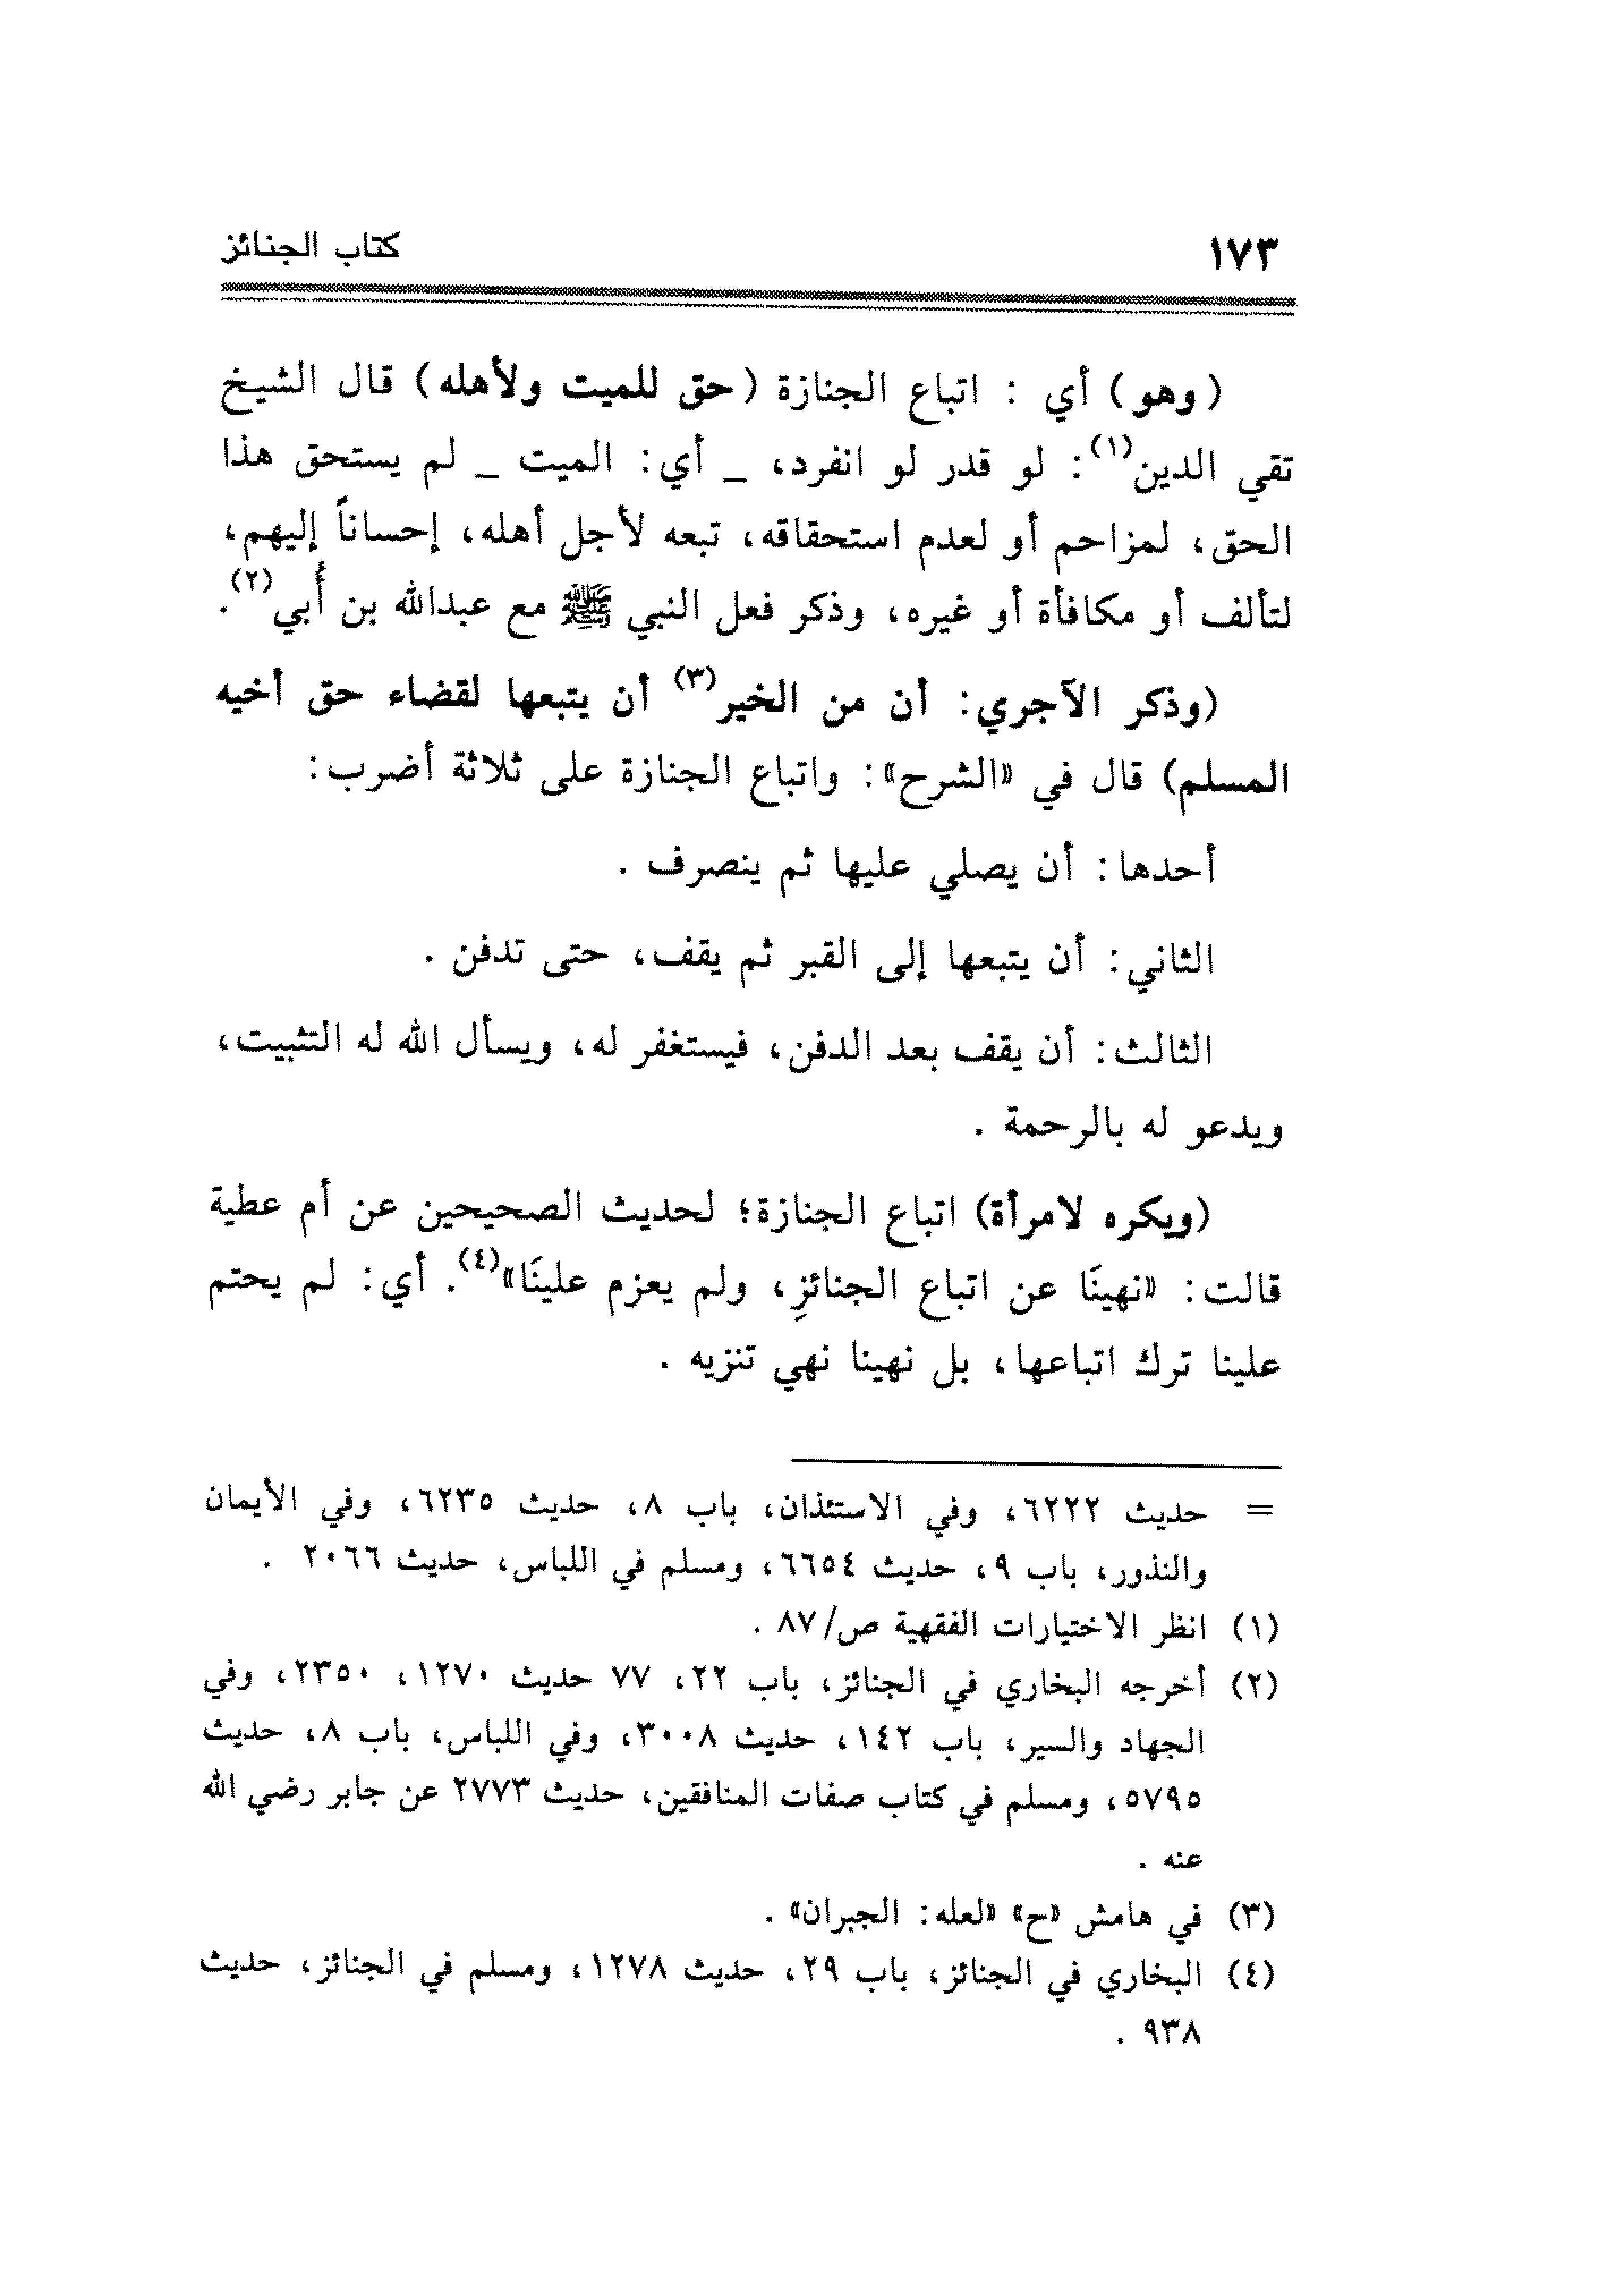 ١٧٣ كتاب الجنائز
(وهو) أي : اتباع الجنازة (حق للميت ولأهله) قال الشيخ
تقي الدين(١): لو قدر لو انفرد، _ أي: الميت _ لم يستحق هذا
الحق، لمزاحم أو لعدم استحقاقه، تبعه لأجل أهله، إحساناً إليهم،
لتألف أو مكافأة أو غيره، وذكر فعل النبي ﷺ مع عبدالله بن أُبي(٢).
(وذكر الآجري: أن من الخير(٣) أن يتبعها لقضاء حق أخيه
المسلم) قال في «الشرح»: واتباع الجنازة على ثلاثة أضرب:
أحدها: أن يصلي عليها ثم ينصرف .
الثاني: أن يتبعها إلى القبر ثم يقف، حتى تدفن .
الثالث: أن يقف بعد الدفن، فيستغفر له، ويسأل الله له التثبيت،
ويدعو له بالرحمة .
(ويكره لامرأة) اتباع الجنازة؛ لحديث الصحيحين عن أم عطية
قالت: «نهينَا عن اتباع الجنائزِ، ولم يعزم علينَا»(٤). أي: لم يحتم
علينا ترك اتباعها، بل نهينا نهي تنزيه .
= حديث ٦٢٢٢، وفي الاستئذان، باب ٨، حديث ٦٢٣٥، وفي الأيمان
والنذور، باب ٩، حديث ٦٦٥٤، ومسلم في اللباس، حديث ٢٠٦٦ .
(١) انظر الاختيارات الفقهية ص/٨٧ .
(٢) أخرجه البخاري في الجنائز، باب ٢٢، ٧٧ حديث ١٢٧٠، ٢٣٥٠، وفي
الجهاد والسير، باب ١٤٢، حديث ٣٠٠٨، وفي اللباس، باب ٨، حديث
٥٧٩٥، ومسلم في كتاب صفات المنافقين، حديث ٢٧٧٣ عن جابر رضي الله
عنه .
(٣) في هامش «ح» «لعله: الجبران» .
(٤) البخاري في الجنائز، باب ٢٩، حديث ١٢٧٨، ومسلم في الجنائز، حديث
٩٣٨ .